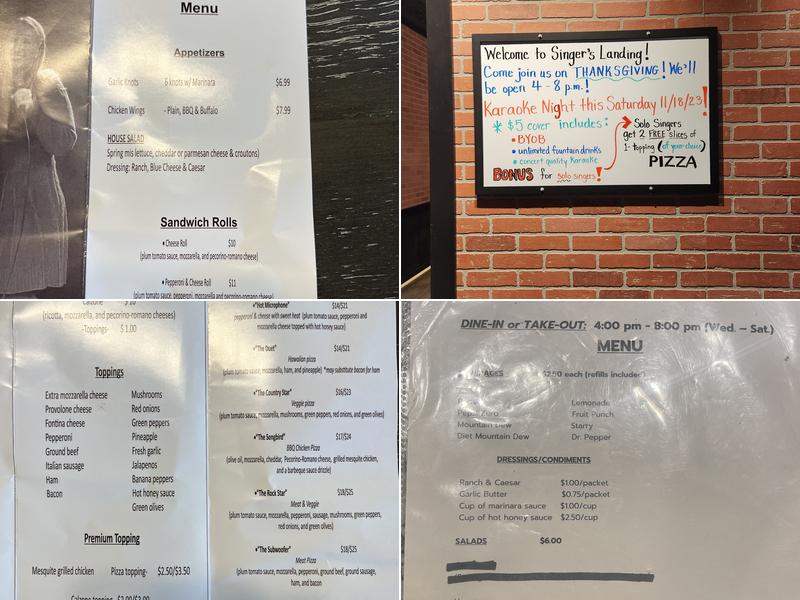 Menu
Appetizers
Garlic Knots 6 knots w/ Marinara $6.99
Chicken Wings - Plain, BBQ & Buffalo $7.99
HOUSE SALAD
Spring mis lettuce, cheddar or parmesan cheese & croutons)
Dressing: Ranch, Blue Cheese & Caesar
Sandwich Rolls
•Cheese Roll $10
(plum tomato sauce, mozzarella, and pecorino-romano cheese)
•Pepperoni & Cheese Roll $11
(plum tomato sauce, pepperoni, mozzarella and pecorino-romano cheese)
Welcome to Singer's Landing!
Come join us on THANKSGIVING! We'll
be open 4 - 8 p.m.!
Karaoke Night this Saturday 11/18/23!
* $5 cover includes:
• BYOB
• unlimited fountain drinks
• concert quality Karaoke
BONUS for solo singers!
Solo Singers
get 2 FREE slices of
1-topping (of your choice)
PIZZA
Calzone $10
(ricotta, mozzarella, and pecorino-romano cheeses)
-Toppings- $1.00
Toppings
Extra mozzarella cheese
Provolone cheese
Fontina cheese
Pepperoni
Ground beef
Italian sausage
Ham
Bacon
Mushrooms
Red onions
Green peppers
Pineapple
Fresh garlic
Jalapenos
Banana peppers
Hot honey sauce
Green olives
Premium Topping
Mesquite grilled chicken Pizza topping- $2.50/$3.50
Calzone topping- $2.00/$3.00
•"Hot Microphone" $14/$21
pepperoni & cheese with sweet heat (plum tomato sauce, pepperoni and
mozzarella cheese topped with hot honey sauce)
•"The Duet" $14/$21
Hawaiian pizza
(plum tomato sauce, mozzarella, ham, and pineapple) *may substitute bacon for ham
•"The Country Star" $16/$23
Veggie pizza
(plum tomato sauce, mozzarella, mushrooms, green peppers, red onions, and green olives)
•"The Songbird" $17/$24
BBQ Chicken Pizza
(olive oil, mozzarella, cheddar, Pecorino-Romano cheese, grilled mesquite chicken,
and a barbeque sauce drizzle)
•"The Rock Star" $18/$25
Meat & Veggie
(plum tomato sauce, mozzarella, pepperoni, sausage, mushrooms, green peppers,
red onions, and green olives)
•"The Subwoofer" $18/$25
Meat Pizza
(plum tomato sauce, mozzarella, pepperoni, ground beef, ground sausage,
ham, and bacon
DINE-IN or TAKE-OUT: 4:00 pm - 8:00 pm (Wed. – Sat.)
MENU
$2.50 each (refills included)
Pepsi Zero
Mountain Dew
Diet Mountain Dew
Lemonade
Fruit Punch
Starry
Dr. Pepper
DRESSINGS/CONDIMENTS
Ranch & Caesar $1.00/packet
Garlic Butter $0.75/packet
Cup of marinara sauce $1.00/cup
Cup of hot honey sauce $2.50/cup
SALADS $6.00